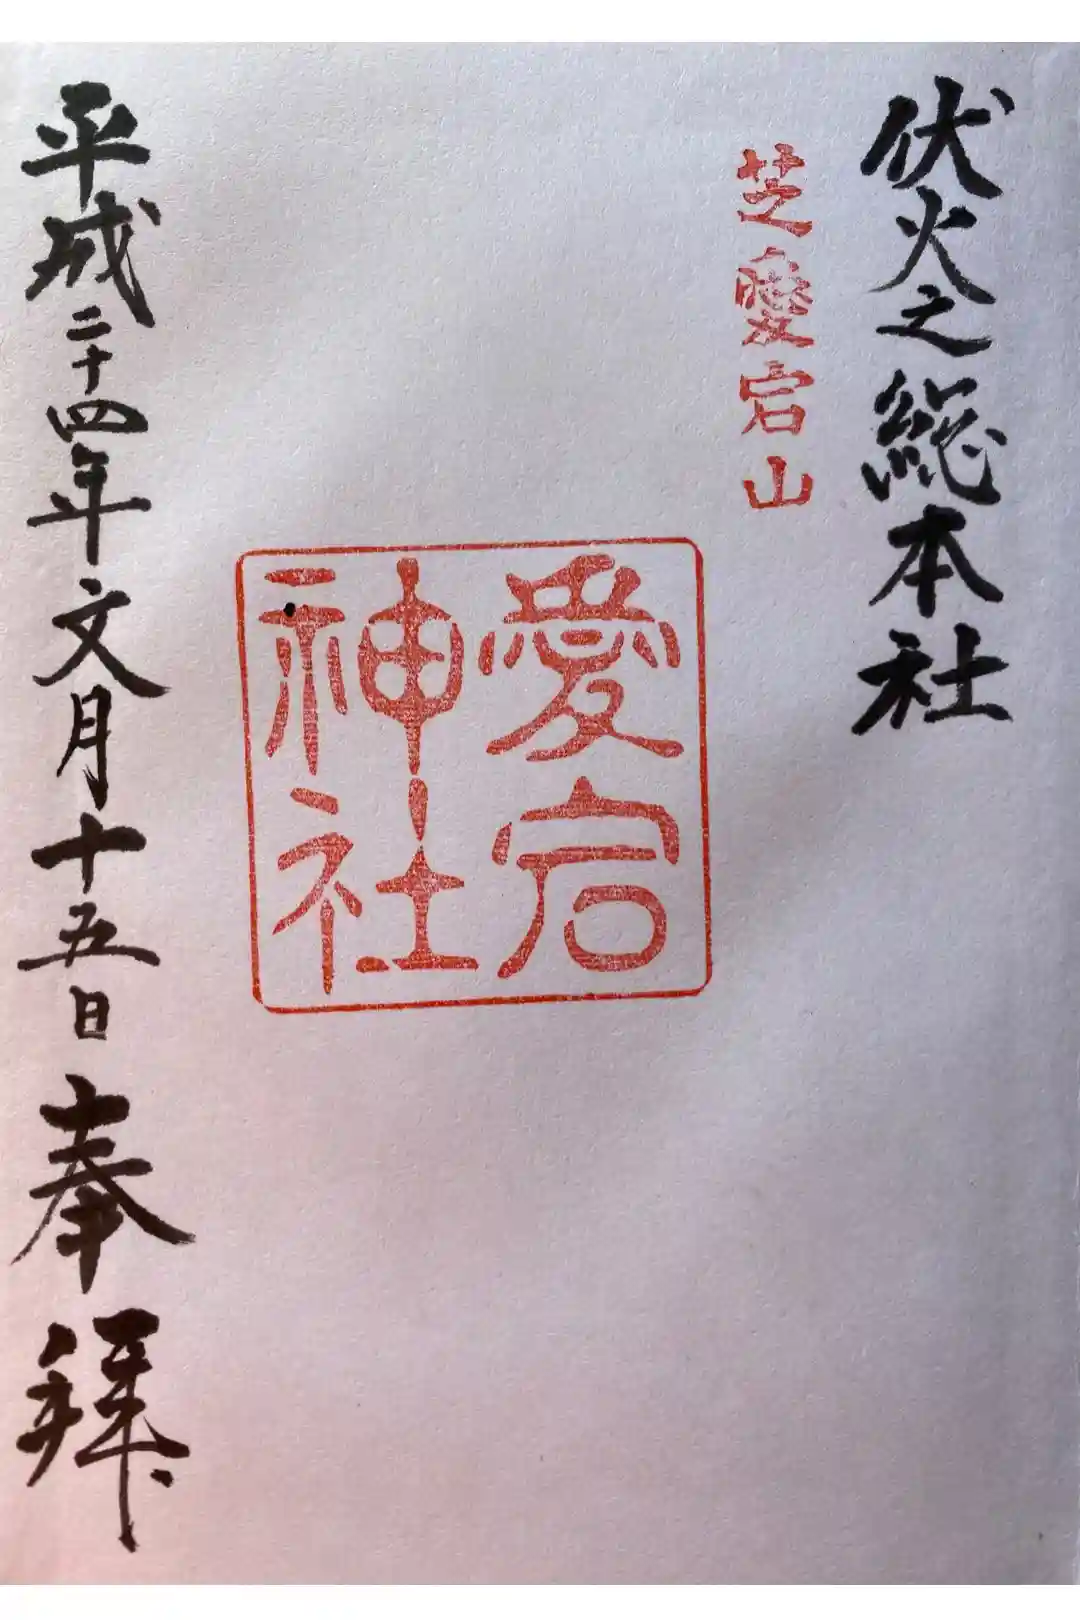 伏火之総本社
芝愛宕山
愛宕
神社
平成二十四年文月十五日奉拝